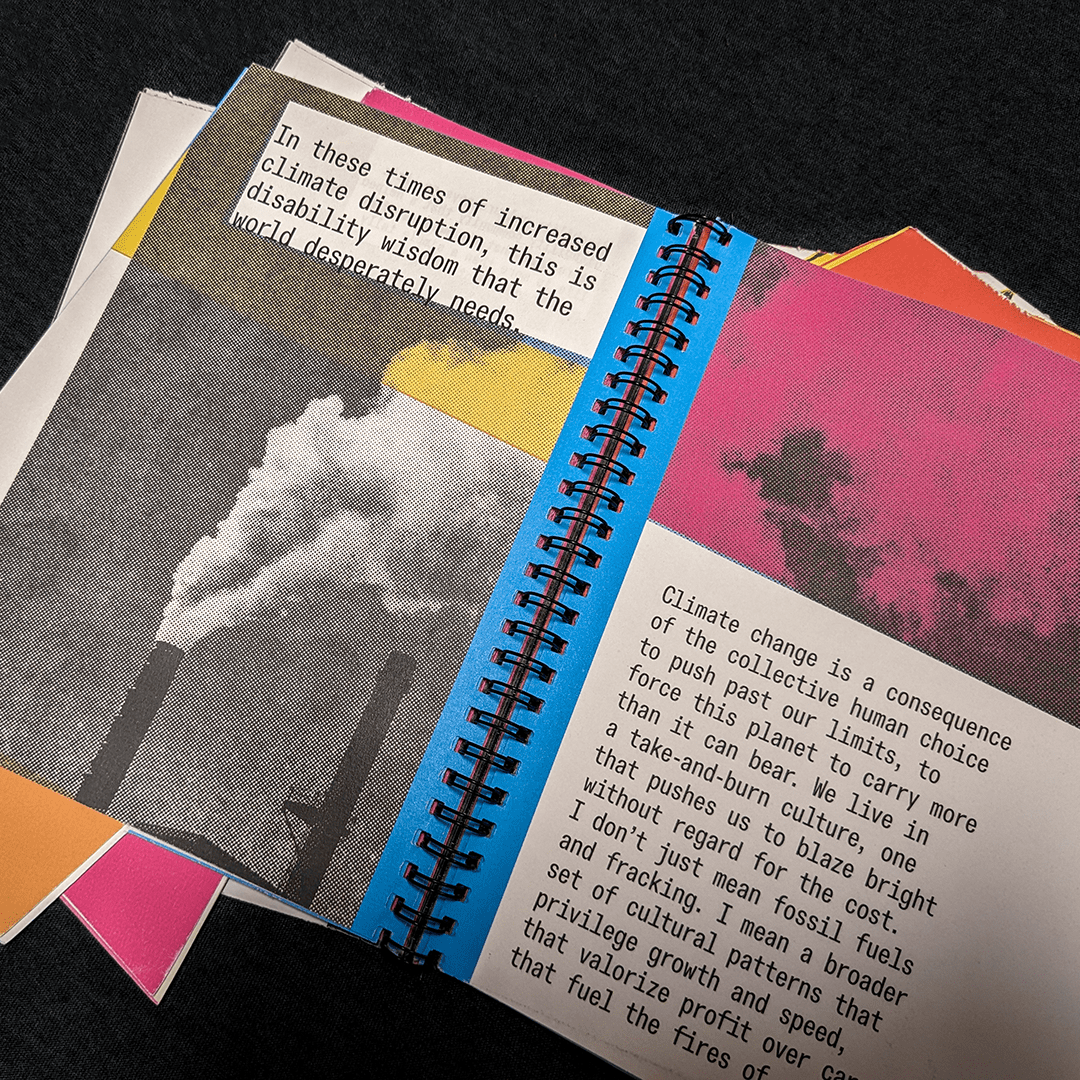 In these times of increased
climate disruption, this is
disability wisdom that the
world desperately needs.
Climate change is a consequence
of the collective human choice
to push past our limits, to
force this planet to carry more
than it can bear. We live in
a take-and-burn culture, one
that pushes us to blaze bright
without regard for the cost.
I don't just mean fossil fuels
and fracking. I mean a broader
set of cultural patterns that
privilege growth and speed,
that valorize profit over
that fuel the fires of